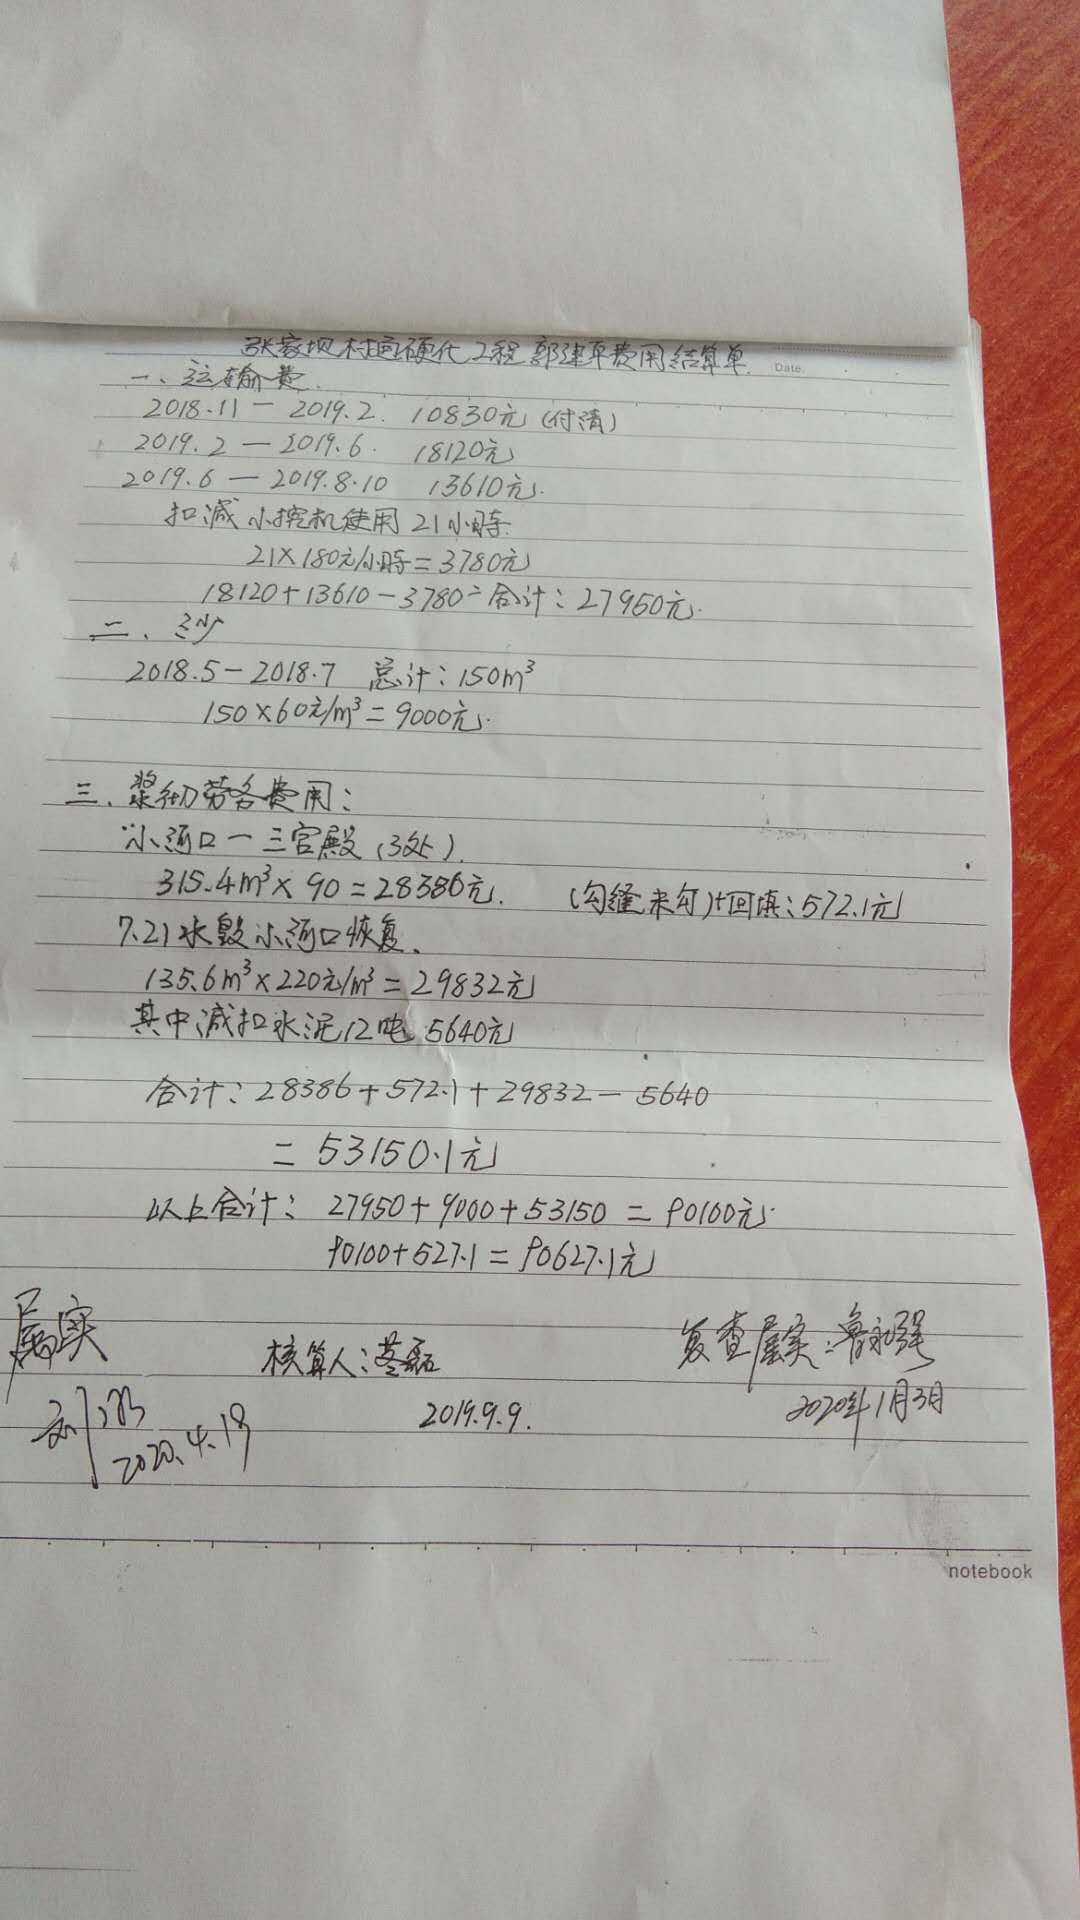 张家坝村道硬化工程郭建军费用结算单. Date.
一、运输费.
2018.11 — 2019.2. 10830元(付清)
2019.2 — 2019.6. 18120元
2019.6 — 2019.8.10 13610元.
扣减小挖机使用21小時.
21×180元/小時=3780元
18120+13610-3780=合计:27950元.
二、沙
2018.5-2018.7 总计:150m³
150×60元/m³=9000元.
三、浆彻劳务费用:
小河口一三官殿(3处).
315.4m³×90=28386元. (勾缝未勾)+回填:572.1元
7.21水毁小河口恢复.
135.6m³×220元/m³=29832元
其中减扣水泥12吨 5640元
合计:28386+572.1+29832-5640
=53150.1元
以上合计: 27950+9000+53150=90100元.
90100+527.1=90627.1元
属实 核算人: 磊 复查属实:鲁永强
刘 2019.9.9. 2020年1月3日
2020.4.18
notebook